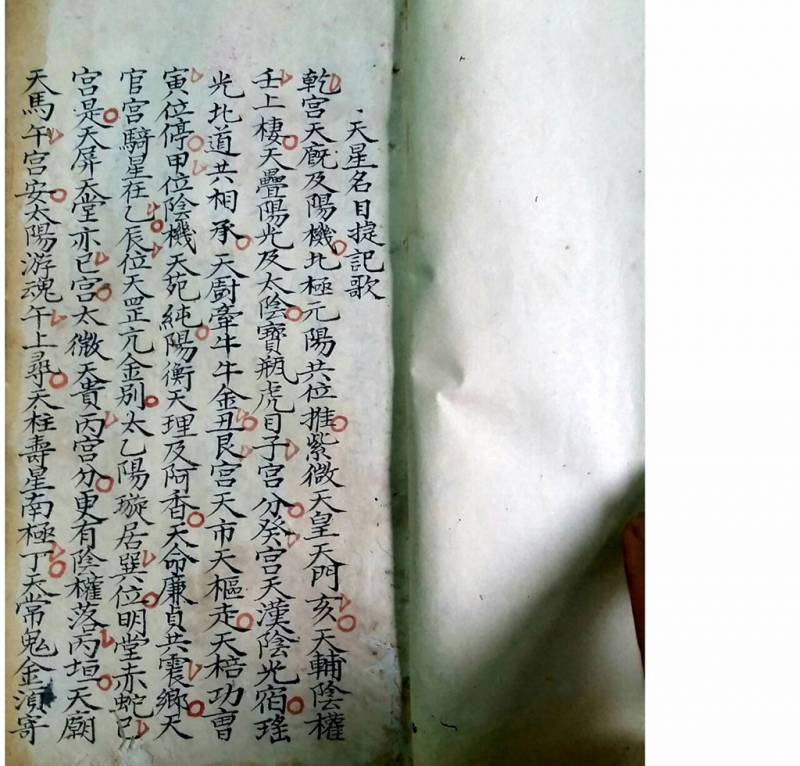 天星名目掟記歌
乾宮天廐及陽機北極元陽共位推紫微天皇天門亥天輔陰權
壬上棲天疊陽光及太陰寶瓶虎目子宮分癸宮天漢陰光宿瑤
光北道共相承天廚牽牛牛金丑艮宮天市天樞走天棓功曹
寅位停甲位陰機天苑純陽衡天理及阿香天命廉貞共震鄉天
官宮騎星在乙辰位天罡亢金別太乙陽璇居巽位明堂赤蛇巳
宮是天屏天堂亦巳宮太微天貴丙宮分更有陰權落丙垣天廟
天馬午宮安太陽游魂午上尋天柱壽星南極丁天常鬼金湏寄